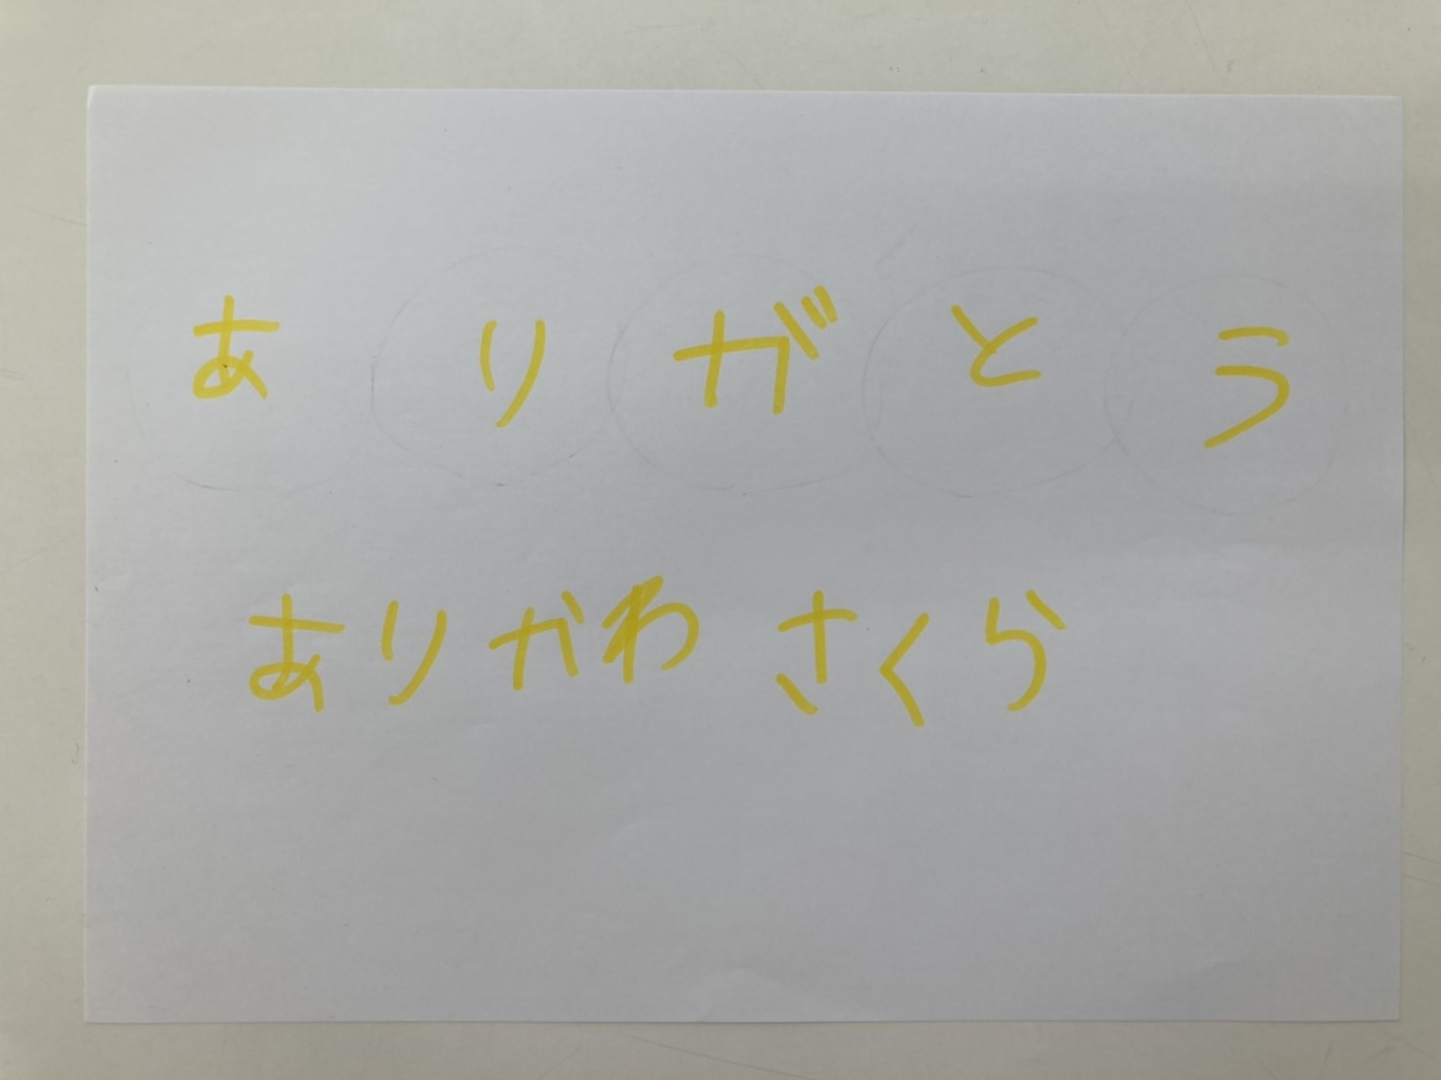 ありがとう
ありかわさくら